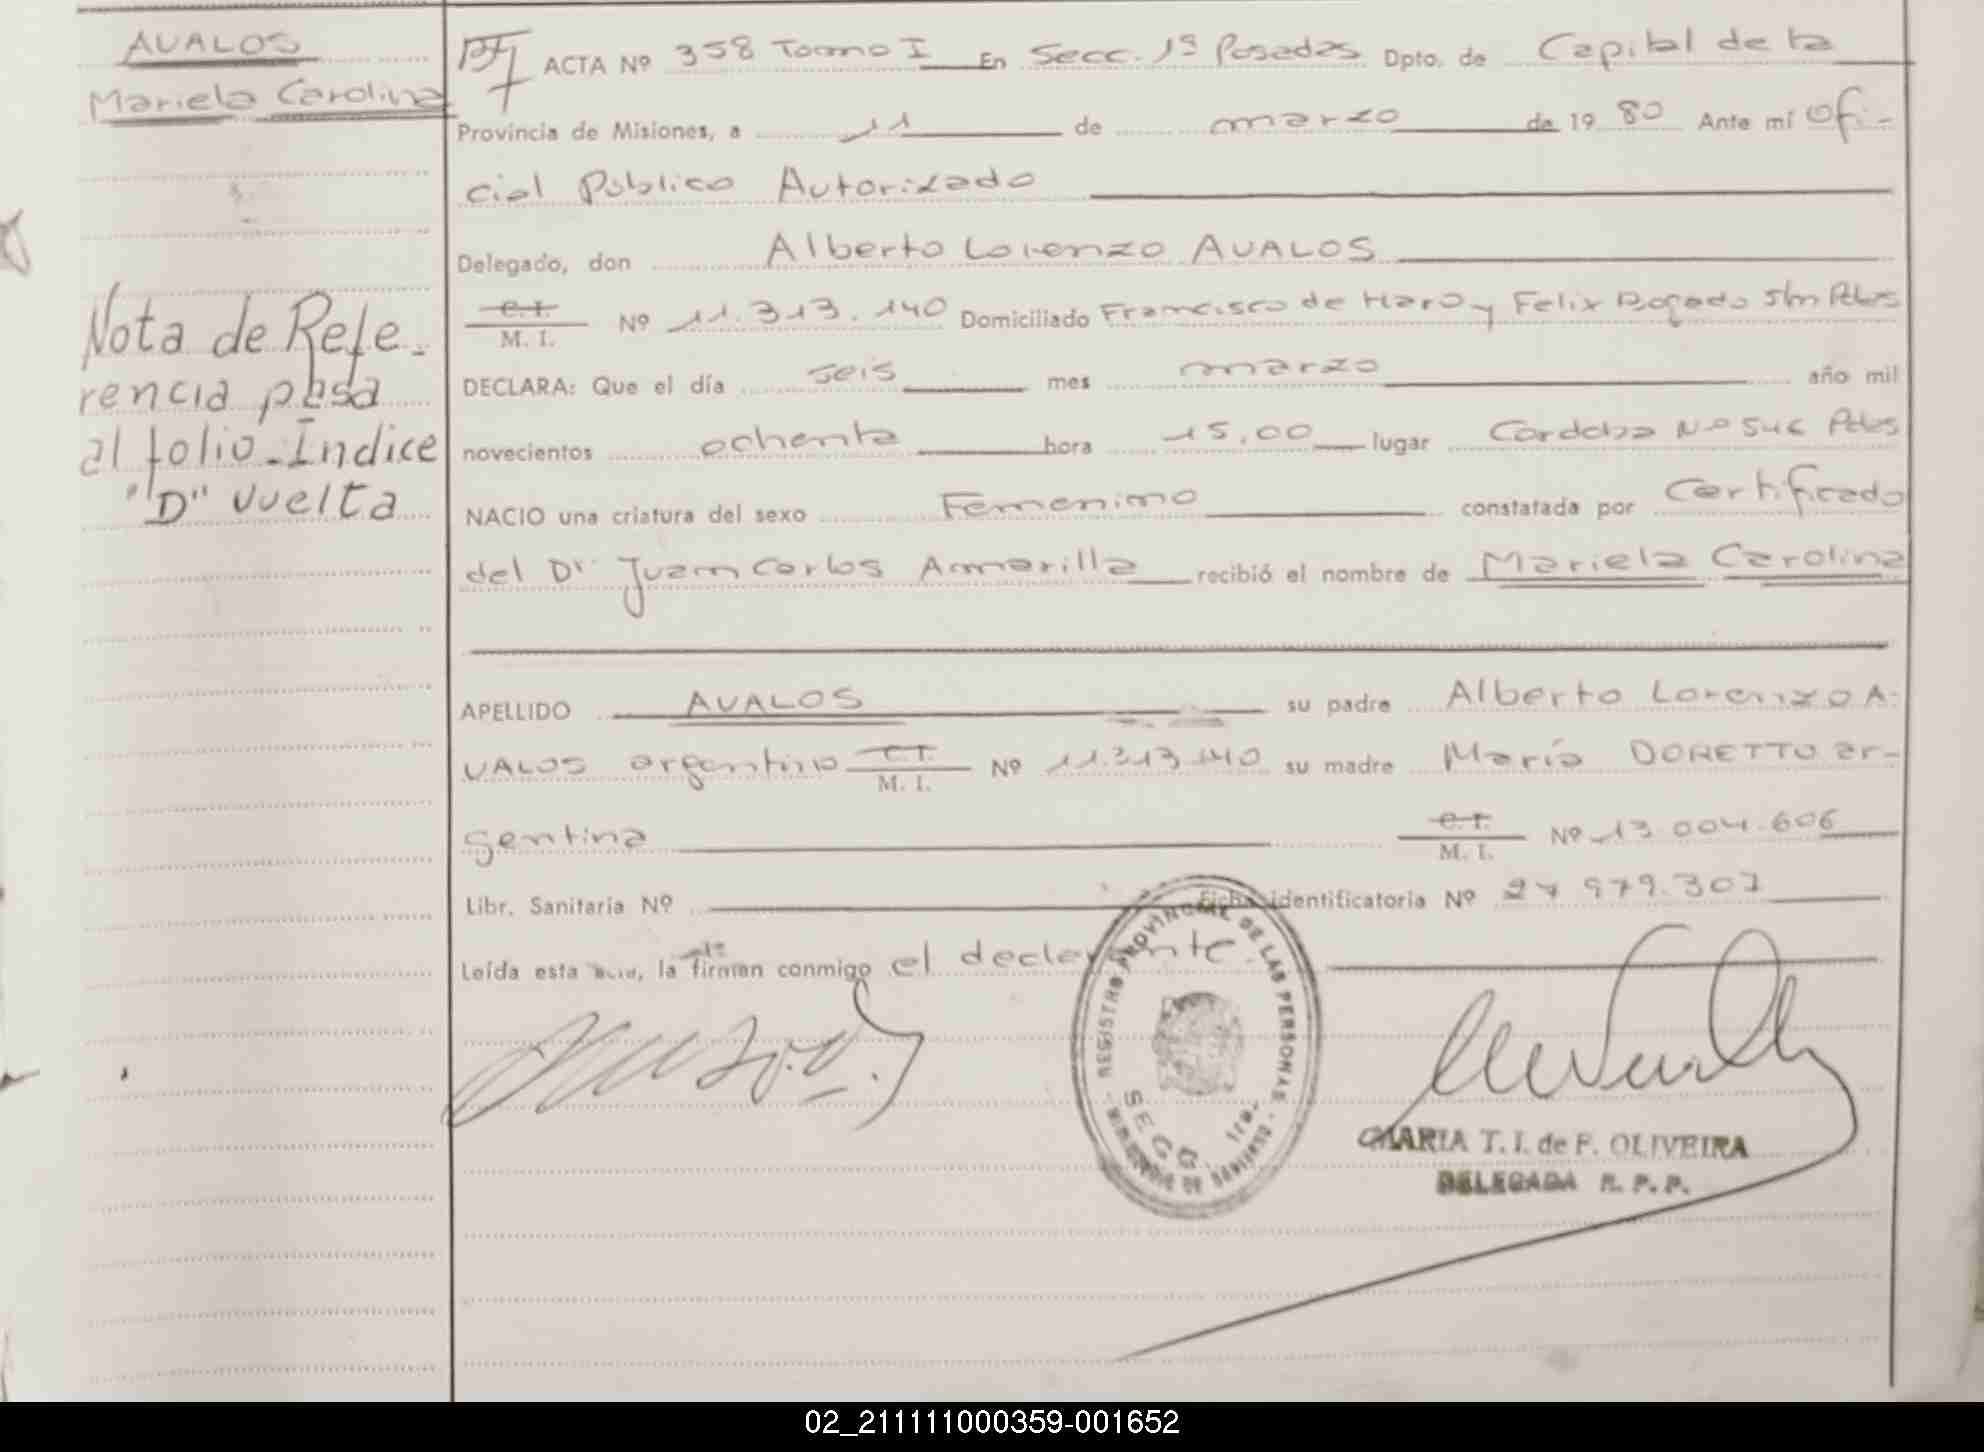 AVALOS
Mariela Carolina
Nota de Refe-
rencia pasa
al folio-Indice
"D" vuelta
ACTA Nº 358 Tomo I En Secc. 1ª Posadas Dpto. de Capital de la
Provincia de Misiones, a 11 de marzo de 19 80 Ante mí Ofi-
cial Público Autorizado
Delegado, don Alberto Lorenzo AVALOS
C.I.
M. I. Nº 11.313.140 Domiciliado Francisco de Haro y Felix Bogado s/n Pdas
DECLARA: Que el día seis mes marzo año mil
novecientos ochenta hora 15,00 lugar Cordoba Nº 546 Pdas
NACIO una criatura del sexo Femenino constatada por Certificado
del Dr Juan Carlos Amarilla recibió el nombre de Mariela Carolina
APELLIDO AVALOS su padre Alberto Lorenzo A-
VALOS argentino C.I.
M. I. Nº 11.313.140 su madre María DORETTO ar-
gentina C.I.
M. I. Nº 13.004.606
Libr. Sanitaria Nº Ficha identificatoria Nº 27.979.307
Leída esta, la firman conmigo el declarante.
REGISTRO PROVINCIAL DE LAS PERSONAS
MINISTERIO DE GOBIERNO
SECC. 1ra.
MARIA T. I. de F. OLIVEIRA
DELEGADA R. P. P.
02_211111000359-001652